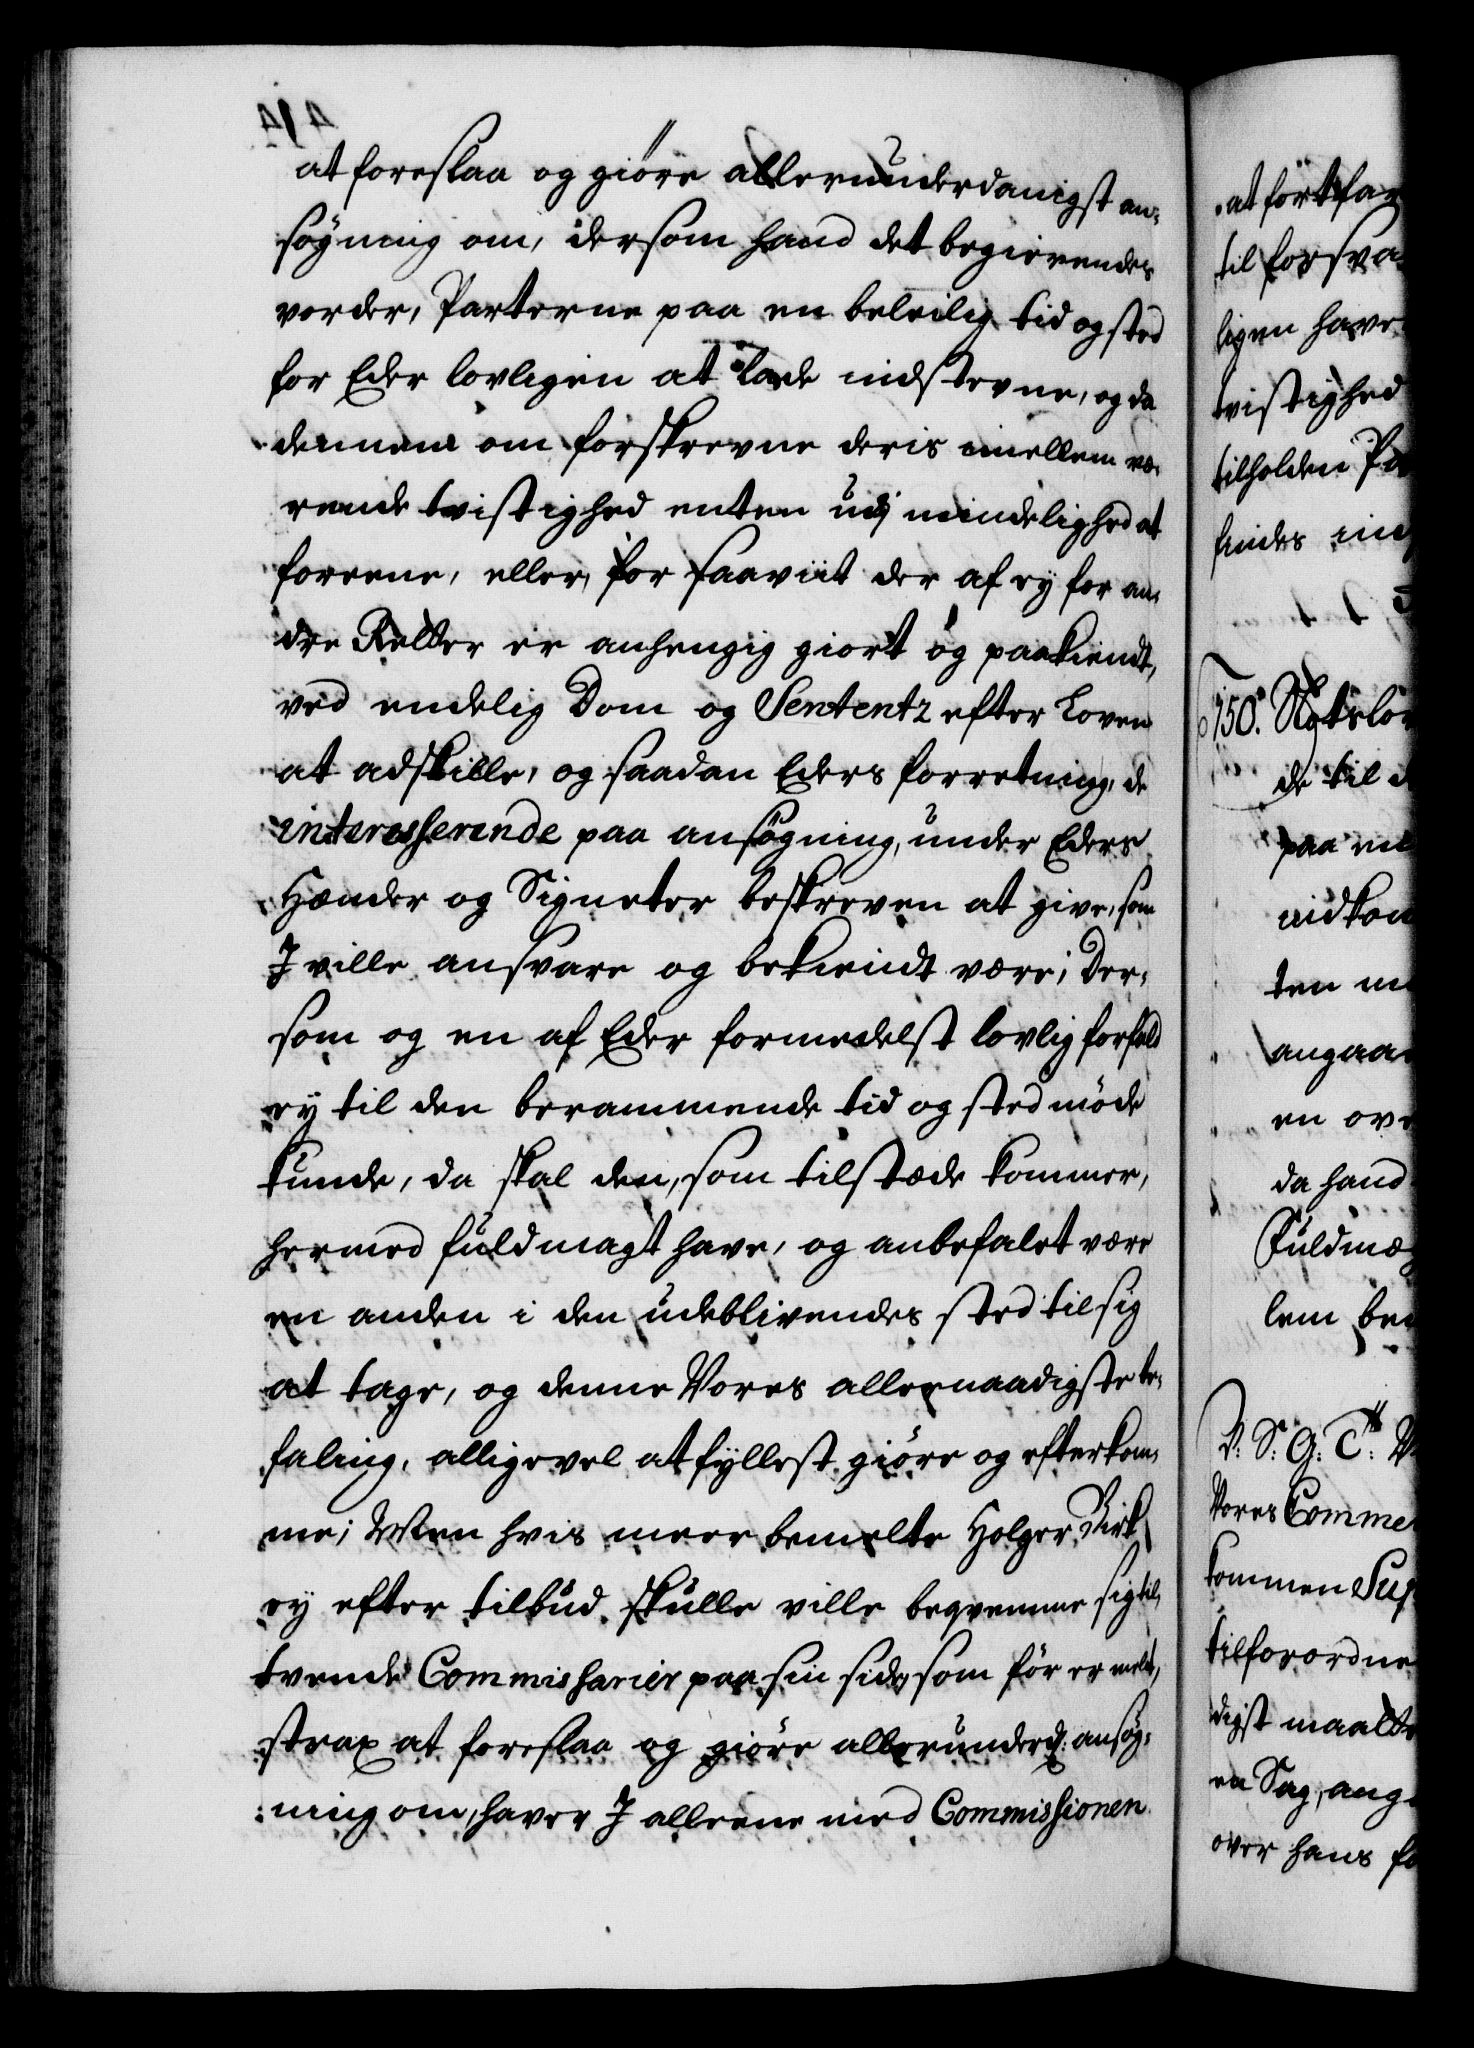 at foreslaa og giöre allerunderdanigst an¬
søgning om, dersom hand det begierendes
vorder, Parterne paa en beleilig tid og sted
for Eder lovligen at lade indstevne, og da
dennem om forskrevne deris imellem væ¬
rende tvistighed enten udj mindelighed at
foreene, eller, for saaviit der af ey for an¬
dre Retter er anhengig giort og paakiendt,
ved endelig Dom og Sententz efter Loven
at adskille, og saadan Eders forretning, de
interesserende paa ansøgning, under Eders
Hænder og Signeter beskreven at give, som
J ville ansvare og bekiendt være; Der¬
som og en af Eder formedelst lovlig forfald
ey til den berammende tid og sted möde
kunde, da skal den, som tilstæde kommer,
hermed fuldmagt have, og anbefalet være
en anden i den udeblivendes sted til sig
at tage, og denne Vores allernaadigste be¬
faling, alligevel at fyllest giöre og efterkom¬
me; Men hvis meer bemelte Holger Birk
ey efter tilbud skulle ville beqvemme sig til,
tvende Commissarier paa sin side, som för er melt,
strax at foreslaa og giöre allerunderd: ansøg¬
ning om, haver J alleene med Commissionen
at fortfar
til forsva
ligen have
tvistighed
tilholden Pa
findes
750.
de til
paa
indkom
ten
angaa
en ov
da hand
Fuldmæg
lem be
V: S: G: T:
Vores Comme
kommen Sup
tilforordne
digst maatte
en Sag, ang
over hans fo